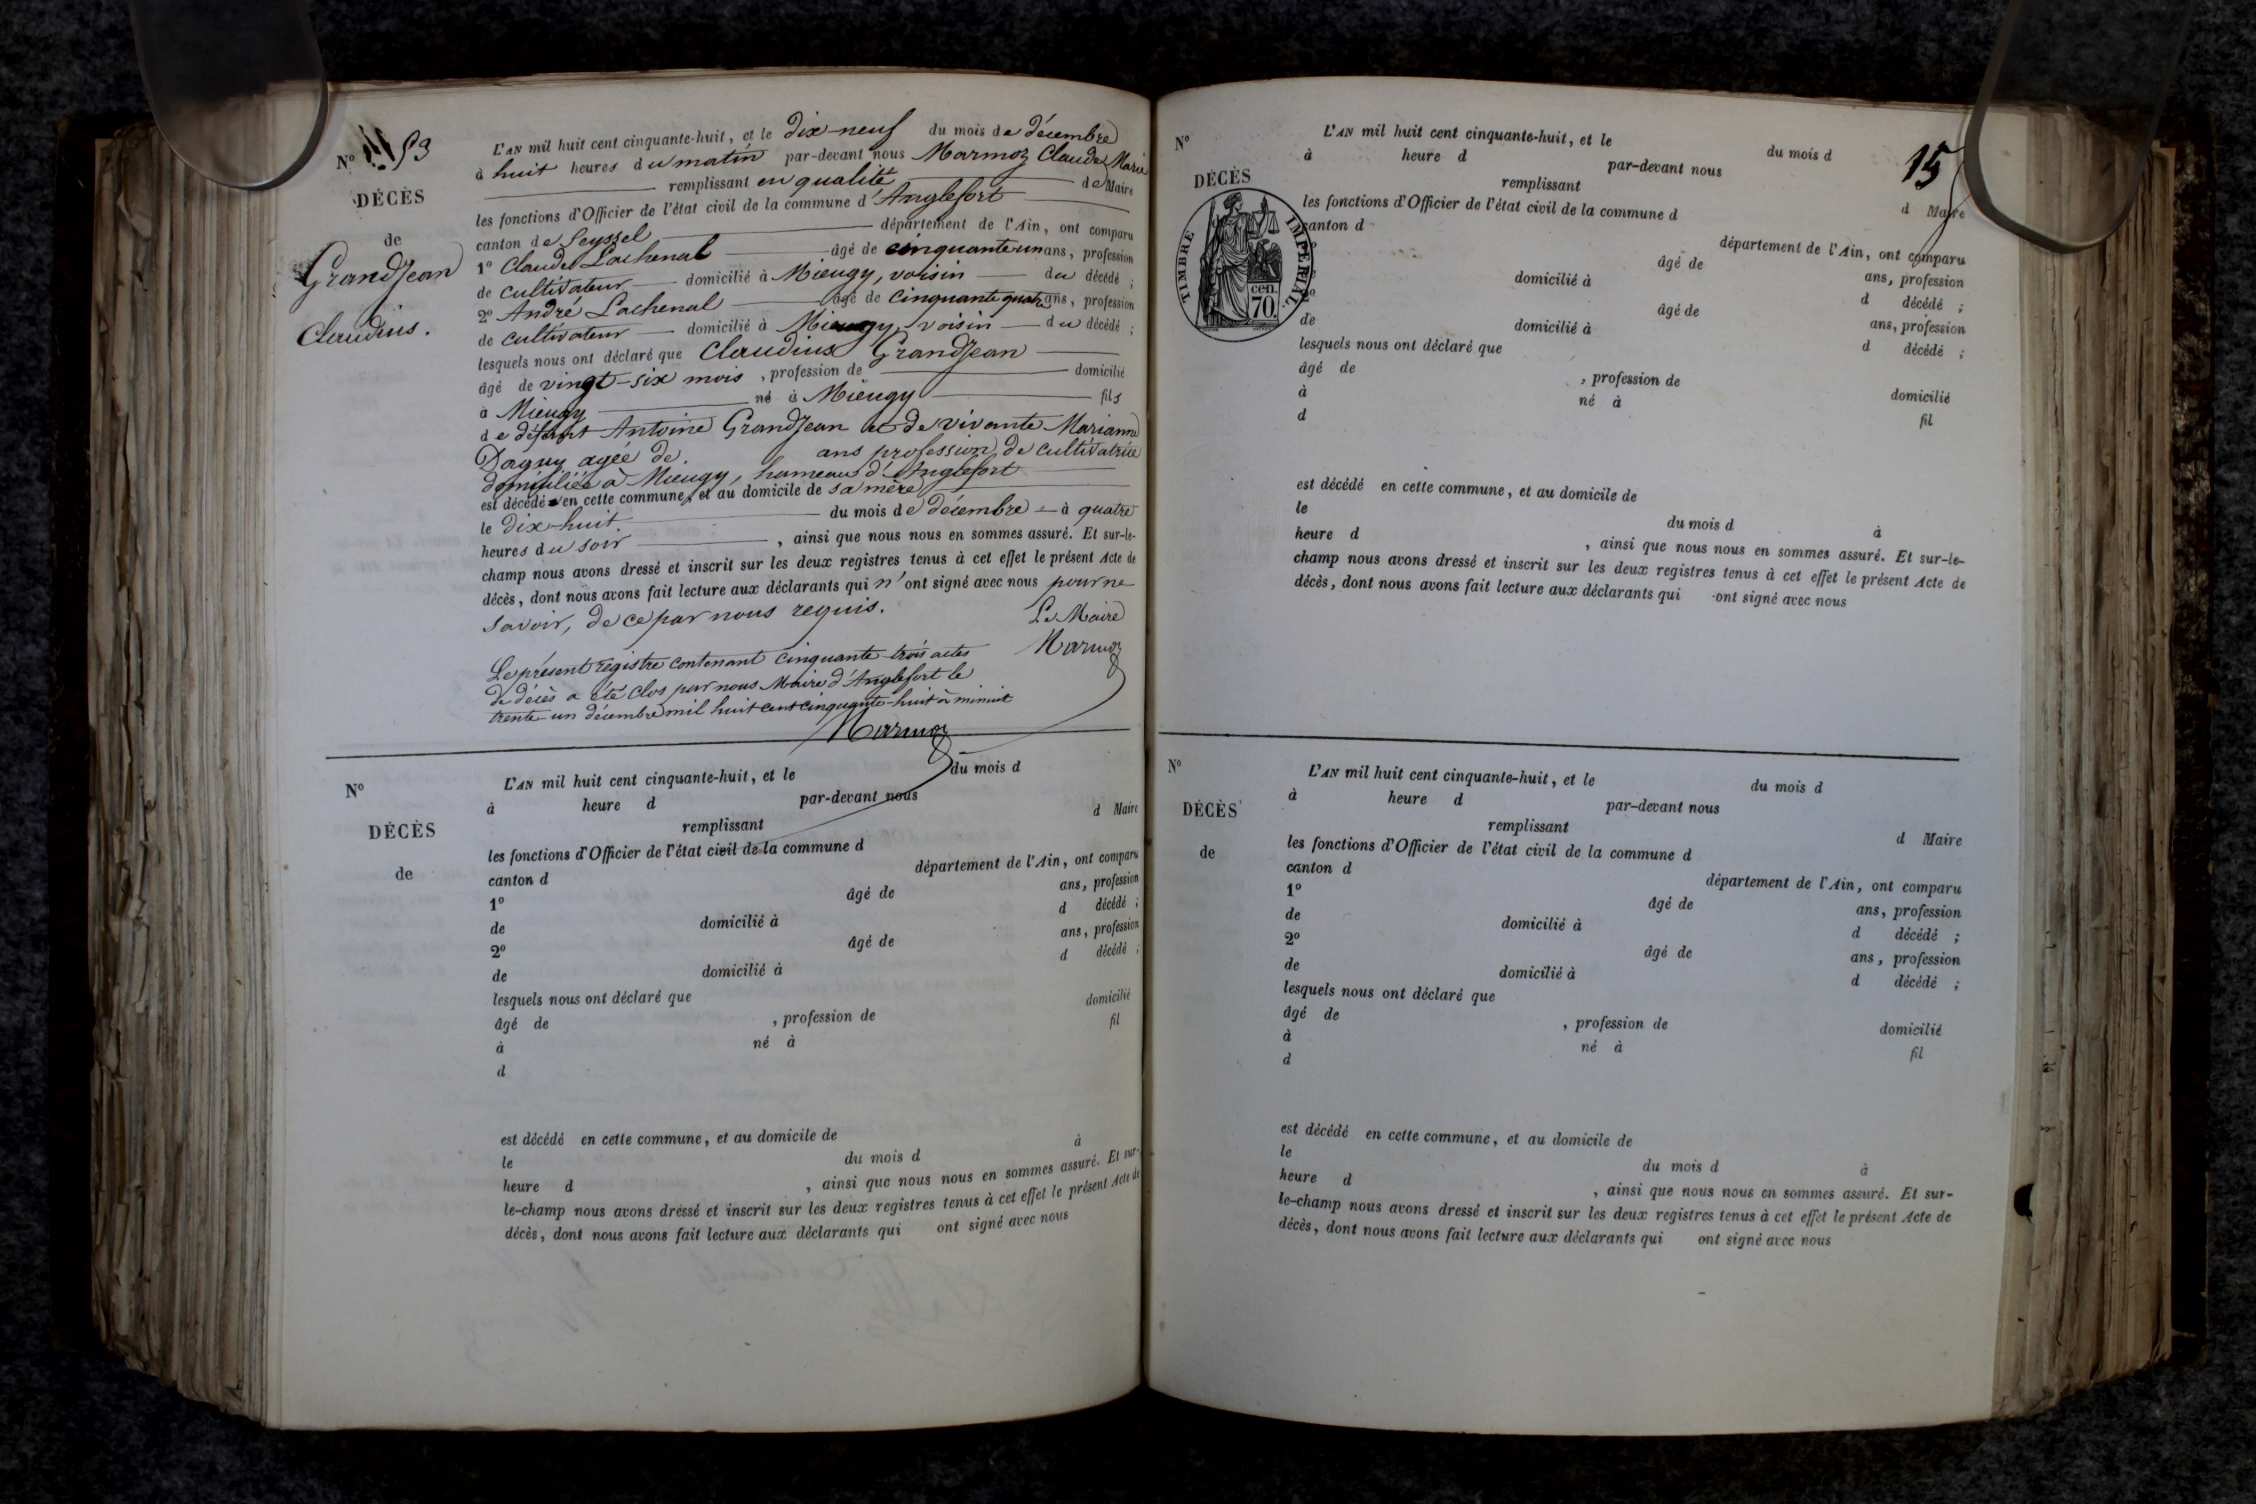 Nº 53
DÉCÈS
de
GrandJean
Claudius.
L'AN mil huit cent cinquante-huit, et le dix-neuf du mois de décembre
à huit heures du matin par-devant nous Marmoz Claude Marie
remplissant en qualité de Maire
les fonctions d'Officier de l'état civil de la commune d'Anglefort
canton de Seyssel département de l'Ain, ont comparu
1º Claude Lachenal âgé de cinquante un ans, profession
de cultivateur domicilié à Mieugy, voisin du décédé ;
2º André Lachenal âgé de cinquante quatre ans, profession
de cultivateur domicilié à Mieugy, voisin du décédé ;
lesquels nous ont déclaré que Claudius GrandJean
âgé de vingt-six mois, profession de domicilié
à Mieugy né à Mieugy fils
de défunt Antoine GrandJean et de vivante Marianne
Daguy agée de. ans profession de cultivatrice
domiciliée à Mieugy, hameau d'Anglefort
est décédé en cette commune, et au domicile de sa mère
le dix-huit du mois de décembre à quatre
heures du soir, ainsi que nous nous en sommes assuré. Et sur-le-
champ nous avons dressé et inscrit sur les deux registres tenus à cet effet le présent Acte de
décès, dont nous avons fait lecture aux déclarants qui n'ont signé avec nous pour ne
savoir, de ce par nous requis.
Le Maire
Marmoz
Le présent registre contenant cinquante-trois actes
de décès a été clos par nous Maire d'Anglefort le
trente-un décembre mil huit cent cinquante-huit à minuit
Marmoz
Nº
DÉCÈS
de
L'AN mil huit cent cinquante-huit, et le du mois d
à heure d par-devant nous
remplissant d Maire
les fonctions d'Officier de l'état civil de la commune d
canton d département de l'Ain, ont comparu
1º âgé de ans, profession
de domicilié à d décédé ;
2º âgé de ans, profession
de domicilié à d décédé ;
lesquels nous ont déclaré que
âgé de , profession de domicilié
à né à fil
d
est décédé en cette commune, et au domicile de
le du mois d à
heure d , ainsi que nous nous en sommes assuré. Et sur-
le-champ nous avons dressé et inscrit sur les deux registres tenus à cet effet le présent Acte de
décès, dont nous avons fait lecture aux déclarants qui ont signé avec nous
Nº
DÉCÈS
TIMBRE IMPÉRIAL.
cen.
70.
15
L'AN mil huit cent cinquante-huit, et le du mois d
à heure d par-devant nous
remplissant d Maire
les fonctions d'Officier de l'état civil de la commune d
canton d département de l'Ain, ont comparu
âgé de ans, profession
domicilié à d décédé ;
âgé de ans, profession
de domicilié à d décédé ;
lesquels nous ont déclaré que
âgé de , profession de domicilié
à né à fil
d
est décédé en cette commune, et au domicile de
le du mois d à
heure d , ainsi que nous nous en sommes assuré. Et sur-le-
champ nous avons dressé et inscrit sur les deux registres tenus à cet effet le présent Acte de
décès, dont nous avons fait lecture aux déclarants qui ont signé avec nous
Nº
DÉCÈS
de
L'AN mil huit cent cinquante-huit, et le du mois d
à heure d par-devant nous
remplissant d Maire
les fonctions d'Officier de l'état civil de la commune d
canton d département de l'Ain, ont comparu
1º âgé de ans, profession
de domicilié à d décédé ;
2º âgé de ans, profession
de domicilié à d décédé ;
lesquels nous ont déclaré que
âgé de , profession de domicilié
à né à fil
d
est décédé en cette commune, et au domicile de
le du mois d à
heure d , ainsi que nous nous en sommes assuré. Et sur-
le-champ nous avons dressé et inscrit sur les deux registres tenus à cet effet le présent Acte de
décès, dont nous avons fait lecture aux déclarants qui ont signé avec nous